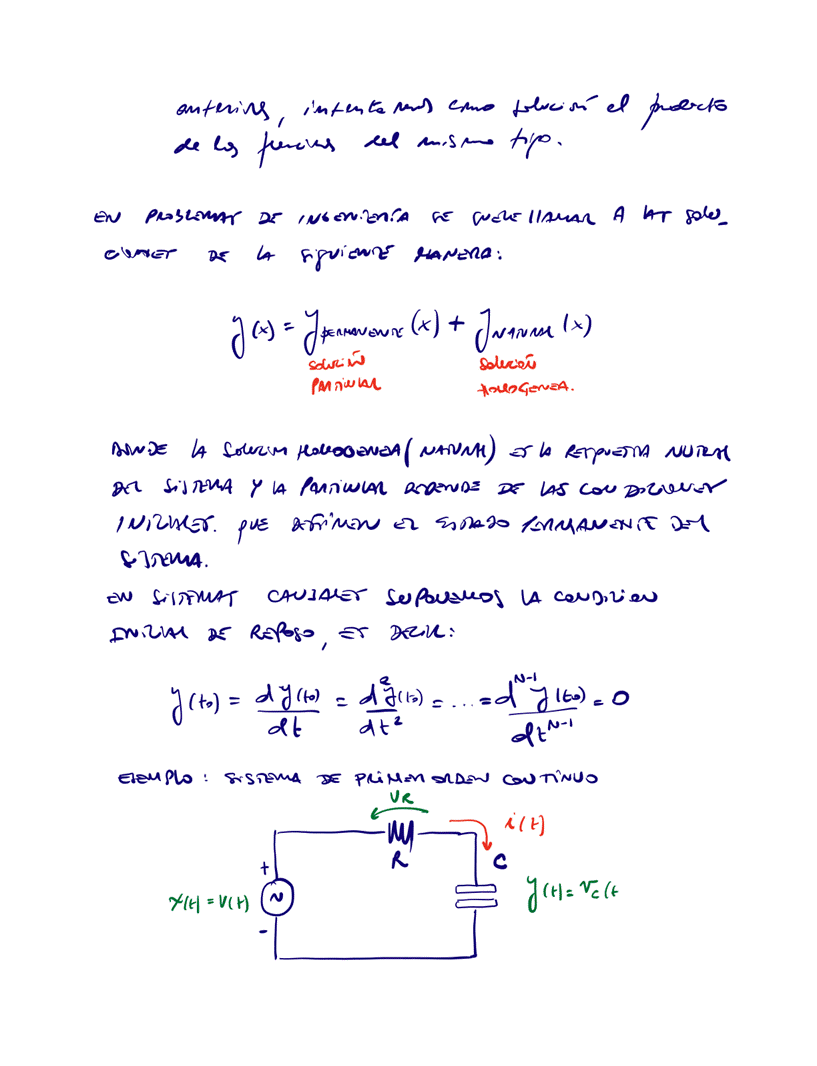 anteriores, intentamos como solución el producto
de las funciones del mismo tipo.
EN PROBLEMAS DE INGENIERÍA SE SUELE LLAMAR A LAS SOLU_
CIONES DE LA SIGUIENTE MANERA:
y(x) = y PERMANENTE (x) + y NATURAL (x)
SOLUCIÓN SOLUCIÓN
PARTICULAR HOMOGENEA.
DONDE LA SOLUCION HOMOGENEA (NATURAL) ES LA RESPUESTA NATURAL
DEL SISTEMA Y LA PARTICULAR DEPENDE DE LAS CONDICIONES
INICIALES. QUE DEFINEN EL ESTADO PERMANENTE DEL
SISTEMA.
EN SISTEMAS CAUSALES SUPONEMOS LA CONDICION
INICIAL DE REPOSO, ES DECIR:
y(t₀) = dy(t₀)/dt = d²y(t₀)/dt² = ... = d^{N-1}y(t₀)/dt^{N-1} = 0
EJEMPLO: SISTEMA DE PRIMER ORDEN CONTINUO
VR
i(t)
+ R C
x(t) = V(t) ~ y(t) = Vc(t
-